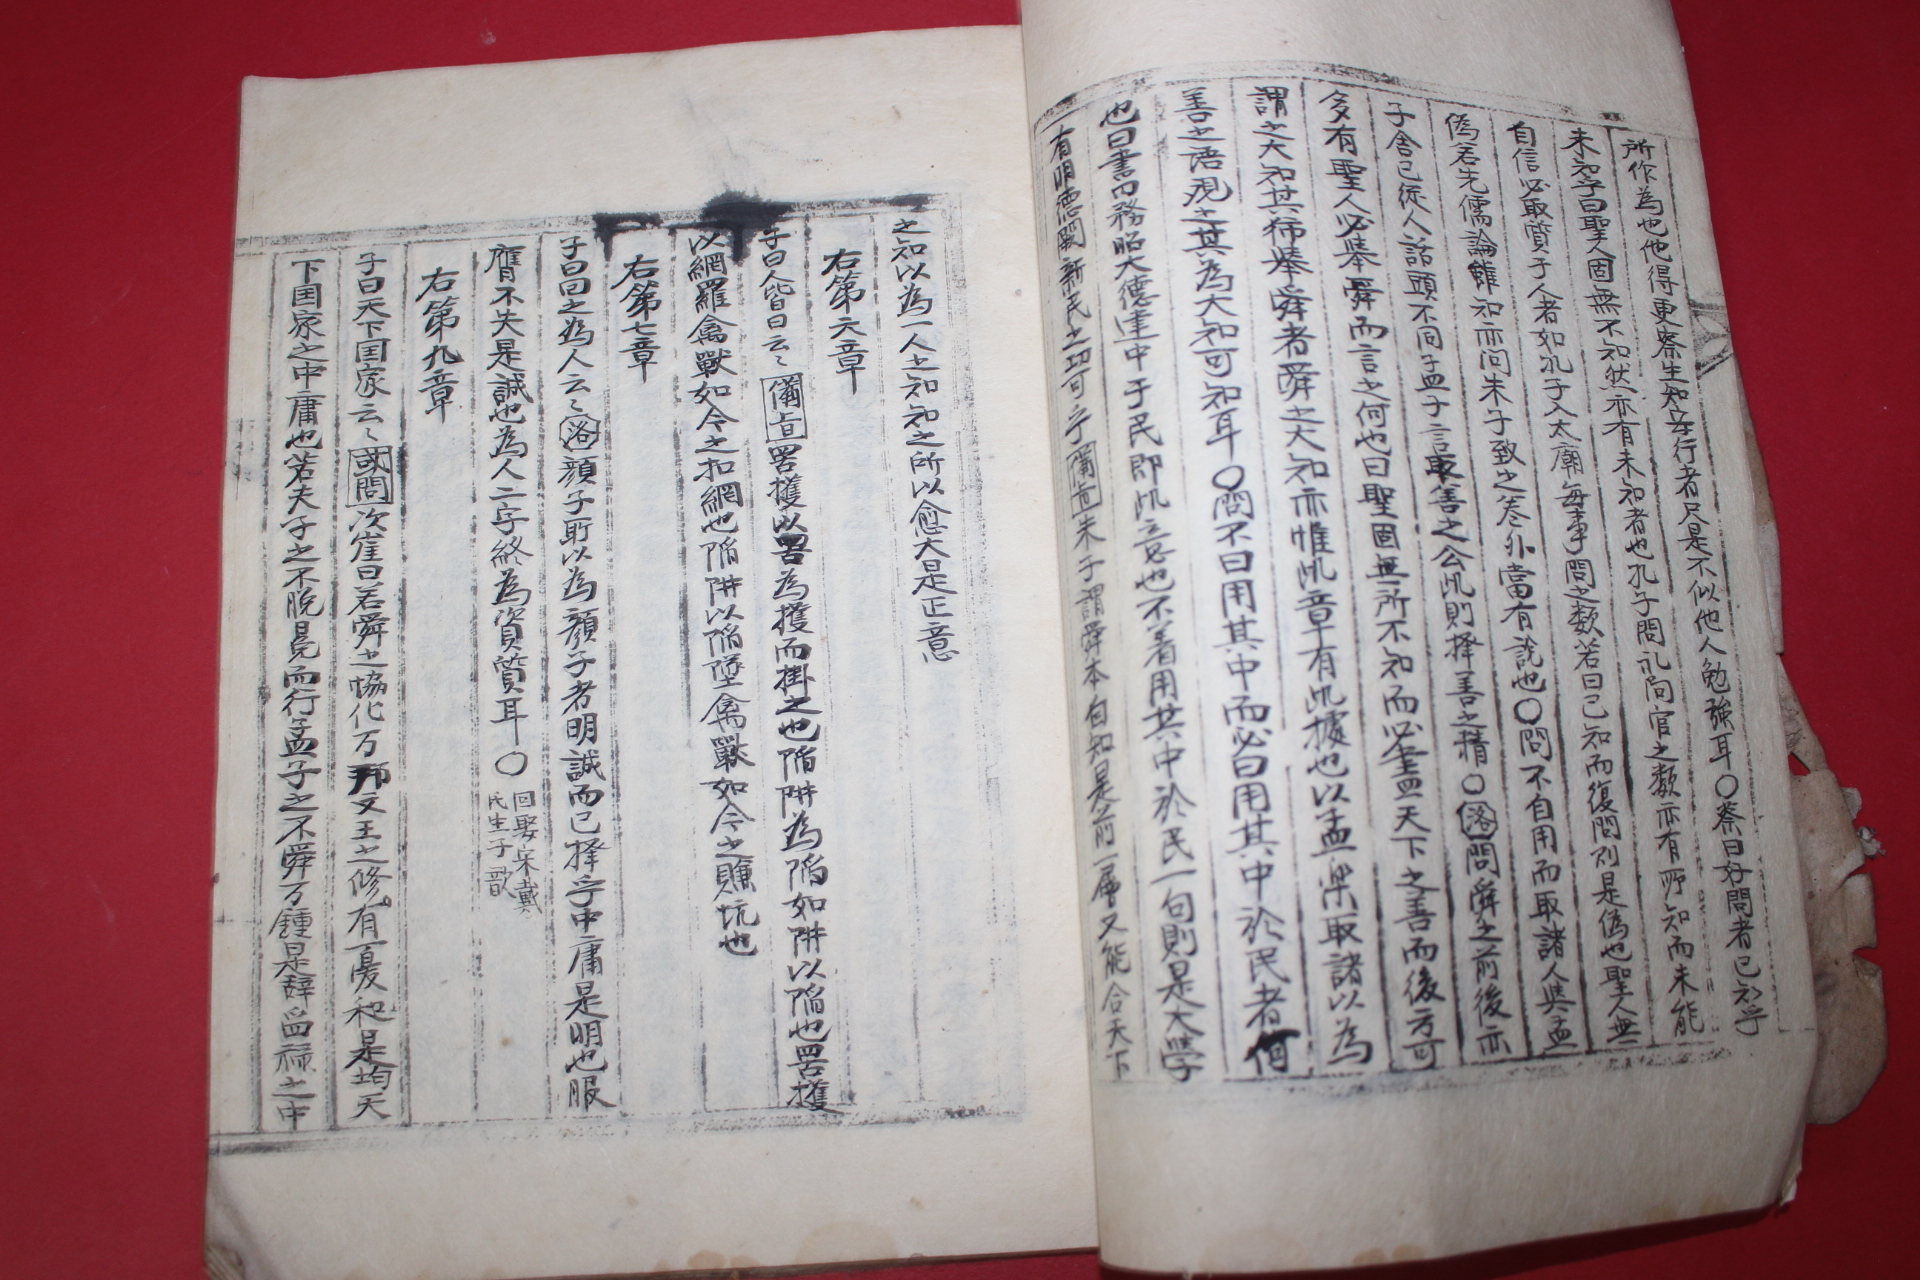 所作為也他得更察生知安行者只是不似他人勉強耳〇蔡曰好問者已知乎
未知乎曰聖人固無不知然亦有未知者也孔子問礼問官之類亦有所知而未能
自信必取質于人者如孔子入太廟每事問之類若曰已知而復問則是偽也聖人無
偽若先儒論雖知亦問朱子致之巻外當有說也〇問不自用而取諸人與孟
子舍已從人話頭不同孟子言取善之公此則择善之精〇洛問舜之前後亦
多有聖人必舉舜而言之何也曰聖固無所不知而必盡天下之善而後方可
謂之大知其稀舉舜者舜之大知亦惟此章有此據也以孟樂取諸以為
善之語現之其為大知可知耳〇問不曰用其中而必曰用其中於民者何
也曰書曰懋昭大德建中于民即此意也不着用其中於民一句則是大學
有明德闕新民之功可乎備旨朱子謂舜本自知是前一層又能合天下
之知以為一人之知知之所以愈大是正意
右第六章
子曰人皆曰云〻備旨罟擭以罟為擭而掛之也陷阱為陷如阱以陷也罟擭
以網羅禽獸如今之扣網也陷阱以陷墜禽獸如今之賺坑也
右第七章
子曰回之為人云〻洛顔子所以為顔子者明誠而已择乎中庸是明也服
膺不失是誠也為人二字終為資質耳〇回娶宋戴
氏生子歆
右第九章
子曰天下国家云〻或問次崔曰若舜之協化万邦文王之修有夏和是均天
下国家之中庸也若夫子之不脱冕而行孟子之不舜万鍾是辞爵祿之中